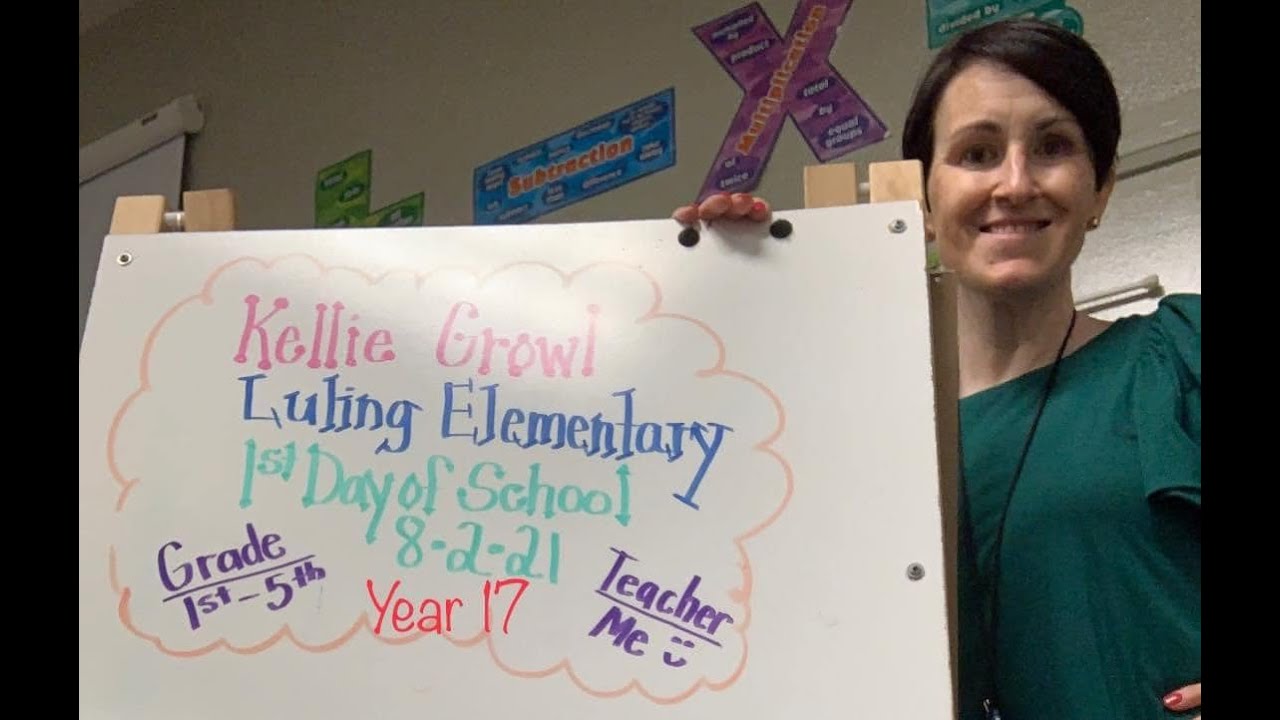 multiplied by
product
Multiplication
total
by
equal
groups
of
twice
divided by
Subtraction
difference
Kellie Growl
Luling Elementary
1st Day of School
8-2-21
Grade
1st-5th
Year 17
Teacher
Me